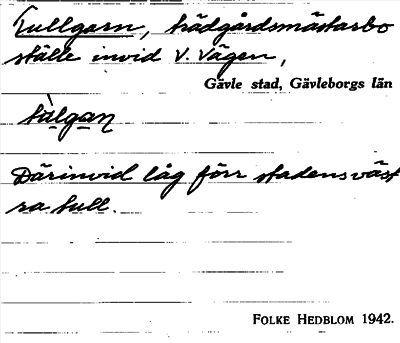 Tullgarn, trädgårdsmästarbo
ställe invid V. Vägen,
Gävle stad, Gävleborgs län
tàlgan
Därinvid låg förr stadens väst
ra tull.
FOLKE HEDBLOM 1942.